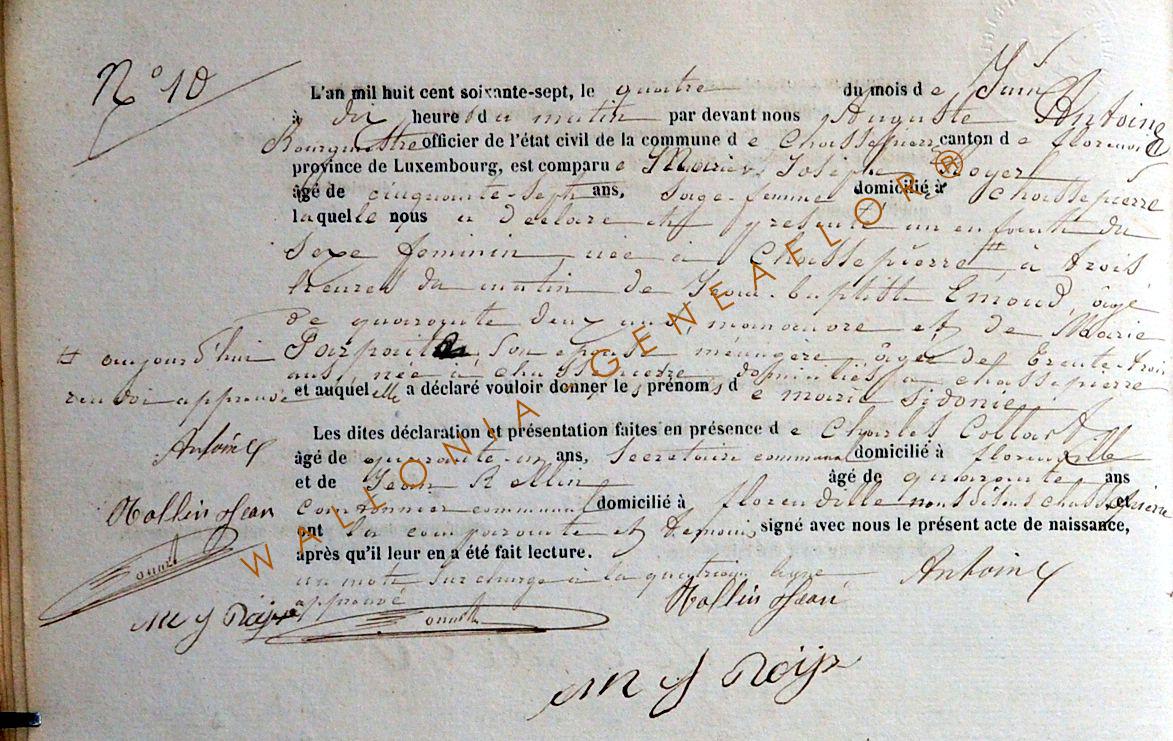 N° 10
L'an mil huit cent soixante-sept, le quatre du mois de Juin
à dix heures du matin par devant nous Auguste Antoine
Bourgmestre officier de l'état civil de la commune de Chassepierre canton de florenville
province de Luxembourg, est comparue Marie Josèphe Royer
âgé de cinquante-sept ans, Sage-femme domicilié à Chassepierre
laquelle nous a déclaré et présenté un enfant du
Sexe feminin, née à Chassepierre # à trois
heures du matin de Jean-baptiste Emond, âgé
de quarante deux ans manoeuvre et de Marie
# aujourd'hui Parpaite, Son épouse ménagère, âgée de trente-trois
ans, née à chassepierre domiciliés à chassepierre
renvoi approuvé et auquel elle a déclaré vouloir donner les prénoms de marie Sidonie
Les dites déclaration et présentation faites en présence de Charles Collart
Antoine âgé de quarante-un ans, Secrétaire communal domicilié à florenville
et de Jean Rollin âgé de quarante ans
Hollin Jean communal domicilié à florenville nous disons chassepierre et
ont la comparante et témoins signé avec nous le présent acte de naissance,
après qu'il leur en a été fait lecture.
un mot surchargé à la quatrième ligne Antoine
approuvé Hollin Jean
M J Roije
M J Roije
WALLONIA - GENEAFLOR®